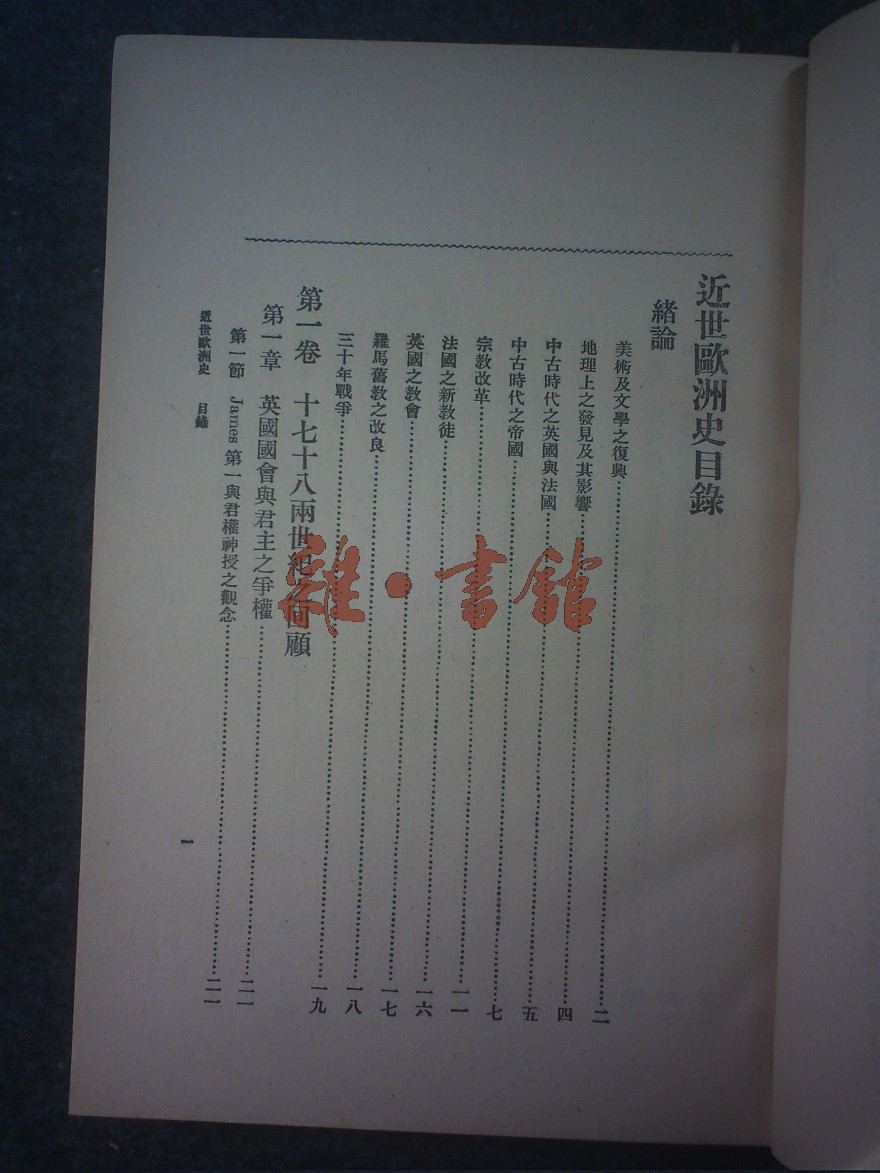 近世歐洲史目錄
緒論
美術及文學之復興……二
地理上之發見及其影響……四
中古時代之英國與法國……五
中古時代之帝國……七
宗教改革……一一
法國之新教徒……一六
英國之教會……一七
羅馬舊教之改良……一八
三十年戰爭……一九
第一卷 十七十八兩世紀之回顧
第一章 英國國會與君主之爭權……二一
第一節 James 第一與君權神授之觀念……二一
近世歐洲史 目錄 一
雜·書館